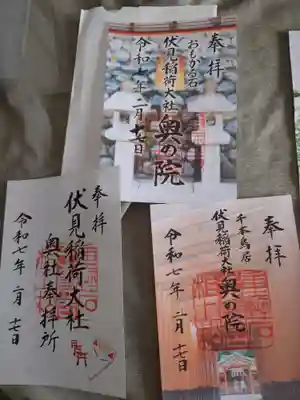 奉拝
おもかる石
伏見稲荷大社
奥の院
令和七年二月十七日
奉拝
伏見稲荷大社
奥社奉拝所
令和七年二月十七日
奉拝
千本鳥居
伏見稲荷大社
奥の院
令和七年二月十七日